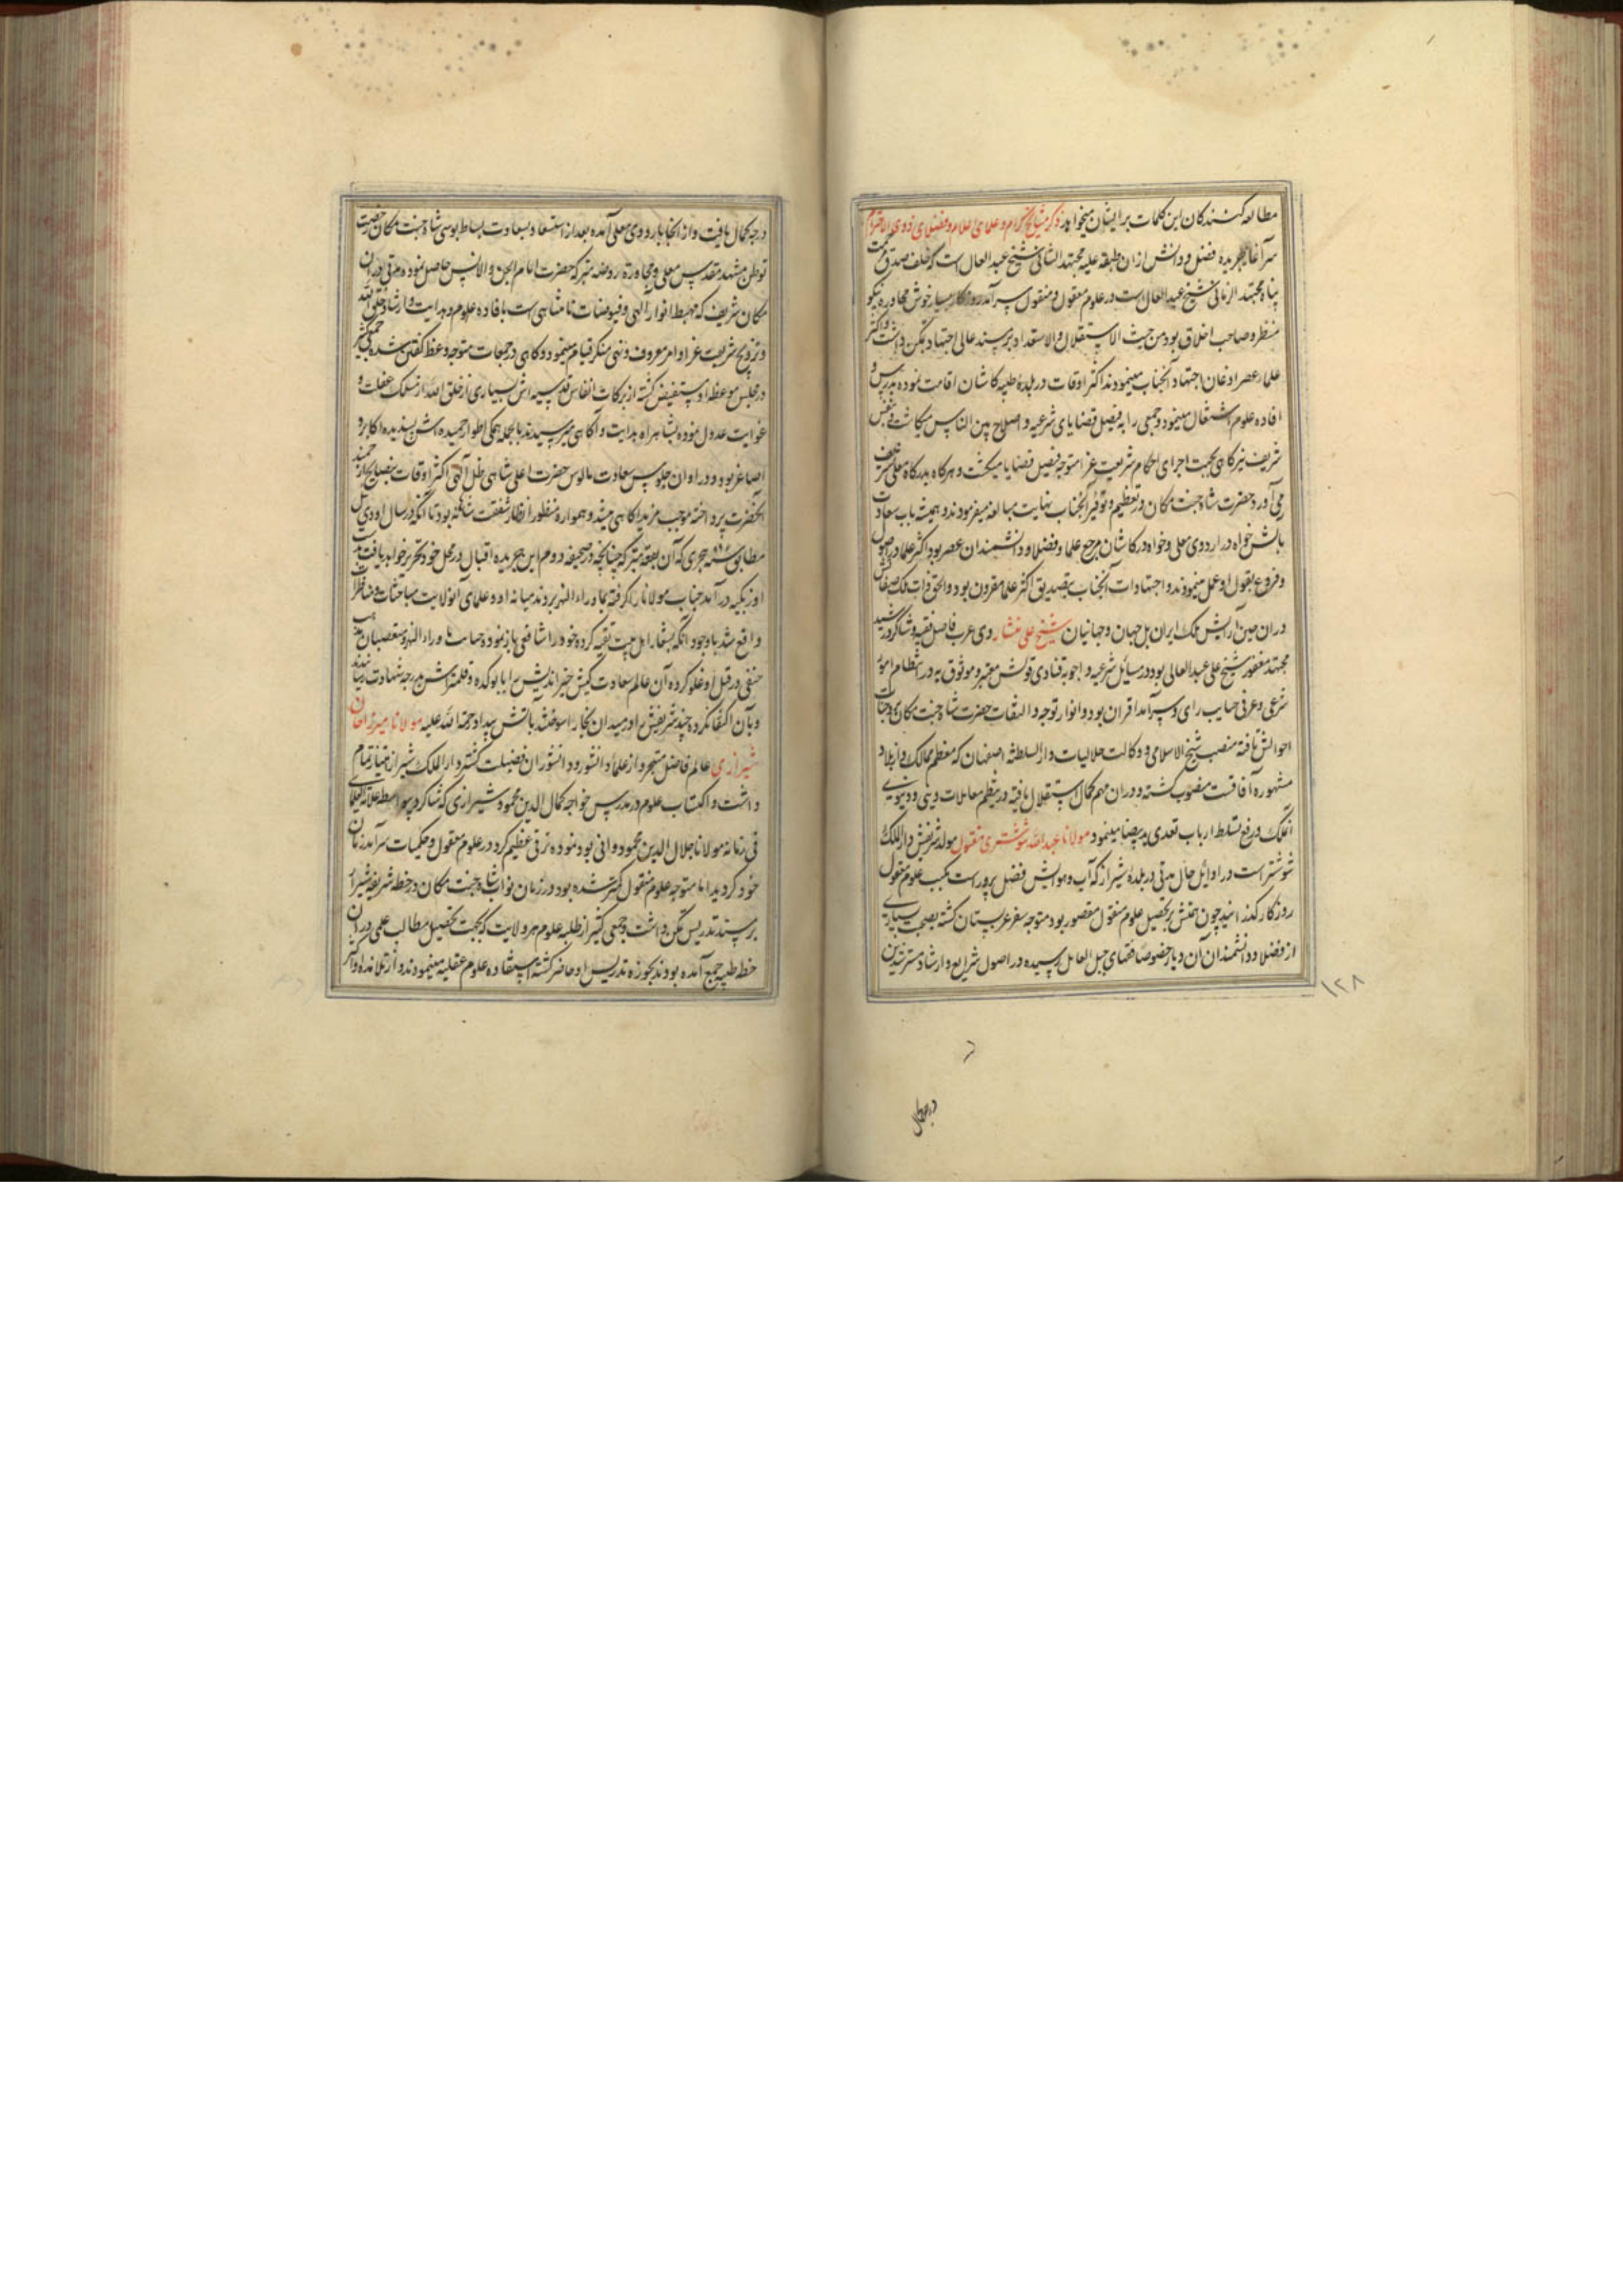 مطالعه کنندکان این کلمات بر ایشان میخواند ذکر مشایخ کرام و علمای اعلام و فضلای ذوی الاحترام
سرآغاز جریده فضل و دانش ازان طبقه علیه مجتهد الثانی شیخ عبد العال است که خلف صدق
پناه مجتهد الزمانی شیخ عبد العال است در علوم معقول و منقول سرآمد روزکار بسیار خوش محاوره نیکو
منظر و صاحب اخلاق بود من حیث الاستقلال والاستعداد بر مسند عالی اجتهاد تمکن داشت و اکثر
علماء عصر اذعان اجتهاد آنجناب مینمودند اکثر اوقات در بلده طیبه کاشان اقامت نموده بدرس و
افاده علوم اشتغال مینمود و جمعی را به فیصل قضایای شرعیه و اصلاح بین الناس میکاشت و بنفس
شریف نیز کاهی بجهت اجرای احکام شریعت غرا متوجه فیصل قضایا میکشت و هرکاه بدرکاه معلی تشریف
می آورد حضرت شاه جنت مکان در تعظیم و توقیر آنجناب نهایت مبالغه میفرمودند و همیشه باب سعادت
بابش خواه در اردوی معلی و خواه در کاشان مرجع علما و فضلا و دانشمندان عصر بود اکثر علما در اصول
و فروع بقول او عمل مینمودند و اجتهادات آنجناب بتصدیق اکثر علما مقرون بود و الحق ذات ملک صفاتش
دران حین آرایش ملک ایران بل جهان و جهانیان شیخ علی منشار وی عرب فاصل فقیه و شاکرد رشید
مجتهد مغفور شیخ علی عبد العالی بود در مسایل شرعیه و اجوبه فتاوی قولش معتبر و موثوق به در انتظام امور
شرعی و عرفی صایب رای و سرآمد اقران بود و انوار توجه و التفات حضرت شاه جنت مکان بر وجنات
احوالش تافته منصب شیخ الاسلامی و وکالت حلالیات دار السلطنة اصفهان که معظم ممالک و از بلاد
مشهوره آفاقست مفوض کشته و دران مهم کمال استقلال یافته در نظم معاملات دینی و دنیوی
انملک و رفع تسلط ارباب تعدی ید بیضا مینمود مولانا عبد الله شوشتری مقتول مولد شریفش دار الملک
شوشتر است در اوایل حال مدتی در بلده شیراز که آب و هوایش فضل پرور است بکسب علوم معقول
روزکار کذرانید چون همتش بر تحصیل علوم منقول مقصور بود متوجه سفر عربستان کشته بصحبت بسیاری
از فضلا و دانشمندان آن دیار خصوصا فقهای جبل العامل رسیده در اصول شرایع و ارشاد مسترشدین
۱۲۸
درجه کمال
درجه کمال یافت و از انجا باردوی معلی آمده بعد از استسعاد بسعادت بساط بوسی شاه جنت مکان رخصت
توطن مشهد مقدس معلی و مجاورة روضه متبرکه حضرت امام الجن و الانس حاصل نموده مدتی دران
مکان شریف که مهبط انوار الهی و فیوضات نامتناهی است بافاده علوم و هدایت و ارشاد خلق الله
و ترویج شریعت غرا و امر معروف و نهی منکر قیام مینمود و کاهی در جمعات متوجه وعظ کفتن شده جمعی کثیر
در مجلس موعظه او مستفیض کشته از برکات انفاس قدسیه اش بسیاری از خلق الله از مسلک غفلت و
غوایت عدول نموده بشاهراه هدایت و آکاهی میرسیدند بالجمله همکی اطوار حمیده اش پسندیده اکابر و
اصاغر بود و در اوان جلوس سعادت مانوس حضرت اعلی شاهی ظل آلهی اکثر اوقات بنصایح ارجمند
آنحضرت پرداخته موجب مزید آکاهی میشد و همواره منظور انظار شفقت شاهانه بود تا آنکه در سال اودی ئیل
مطابق سنه هجری که آن بقعه متبرکه چنانچه در صحیفه دویم این جریده اقبال در محل خود تحریر خواهد یافت بدست
اوزبکیه درآمد جناب مولانا را کرفته بماوراء النهر بردند میانه او و علمای آنولایت مباحثات و مناظرات
واقع شد باوجود آنکه بشعار اهل بیت تقیه کرده خود را شافعی باز نموده حضرات ماوراء النهر و متعصبان مذهب
حنفی در قتل او غلو کرده آن عالم سعادت کیش خیر اندیش را
و بآن اکتفا نکرده جسد شریفش را در میدان بخارا سوختند بآتش بیداد رحمة الله علیه مولانا میرزا جان
شیرازی عالم فاضل متبحر و از علما و دانشوران فضیلت کستر دار الملک شیراز امتیاز تمام
داشت و اکتساب علوم در مدرس خواجه کمال الدین محمود شیرازی که شاکرد بیواسطه علامة العلمای
فی زمانه مولانا جلال الدین محمود دوانی بود نموده ترقی عظیم کرد در علوم معقول و حکمیات سرآمد زمان
خود کردید اما متوجه علوم منقول کمتر شده بود در زمان نواب شاه جنت مکان در خطه شریفه شیراز
بر مسند تدریس تمکن داشت و جمعی کثیر از طلبه علوم هر ولایت که بجهت تحصیل مطالب علمی دران
خطه طیبه جمع آمده بودند بحوزه تدریس او حاضر کشته استفاده علوم عقلیه مینمودند و از تلامذه او اکثر